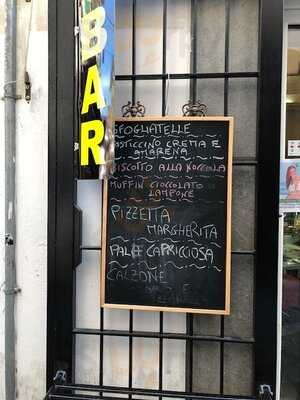 BAR
SFOGLIATELLE
PASTICCINO CREMA E
AMARENA
BISCOTTO ALLA NOCCIOLA
MUFFIN CIOCCOLATO
LAMPONE
PIZZETTA
MARGHERITA
CAPRICCIOSA
CALZONE